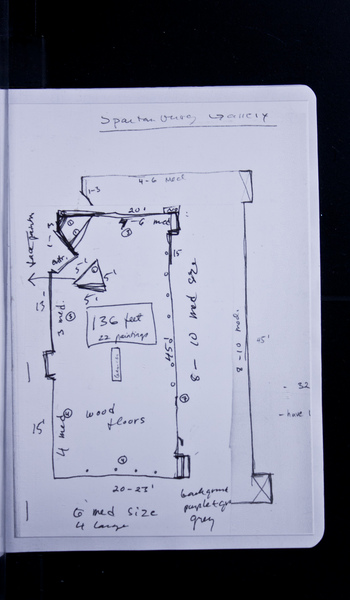 Spartanburg Gallery
4-6 med.
1-3
20'
4-6 med
1-3
15'
5'
5'
5'
13'
3 med.
136 feet
22 paintings
45'
8 - 10 med
8-10 med.
45'
15'
4 med
wood
floors
- 32
- have
20-23'
6 med size
4 large
background
grey